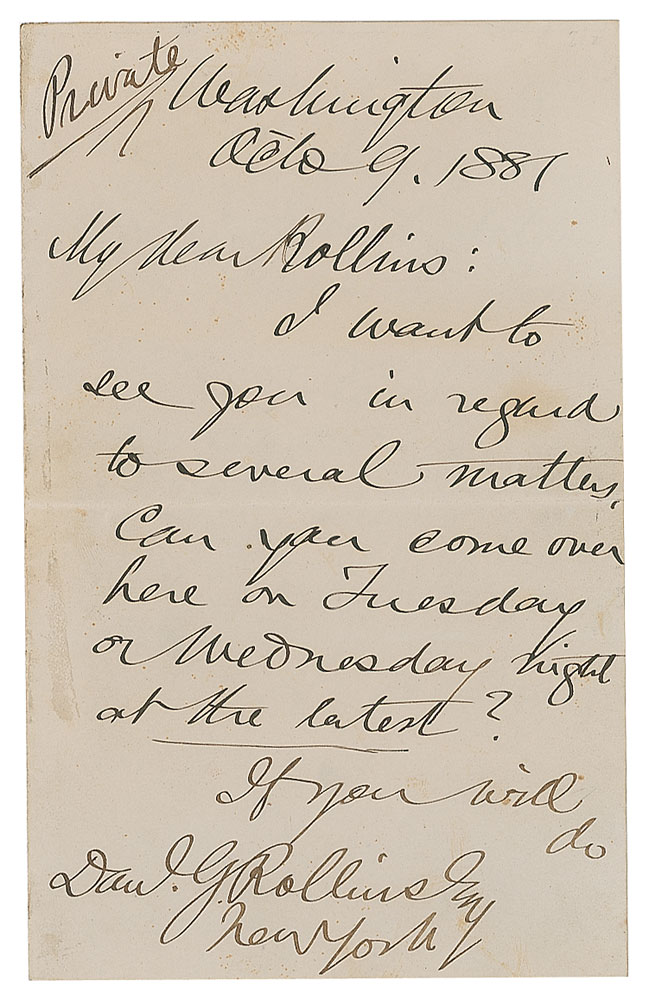 Private
Washington
Octo 9. 1881
My dear Rollins:
I want to
see you in regard
to several matters.
Can you come over
here on Tuesday
or Wednesday night
at the latest?
If you will
do
Danl. G. Rollins Esq
New York